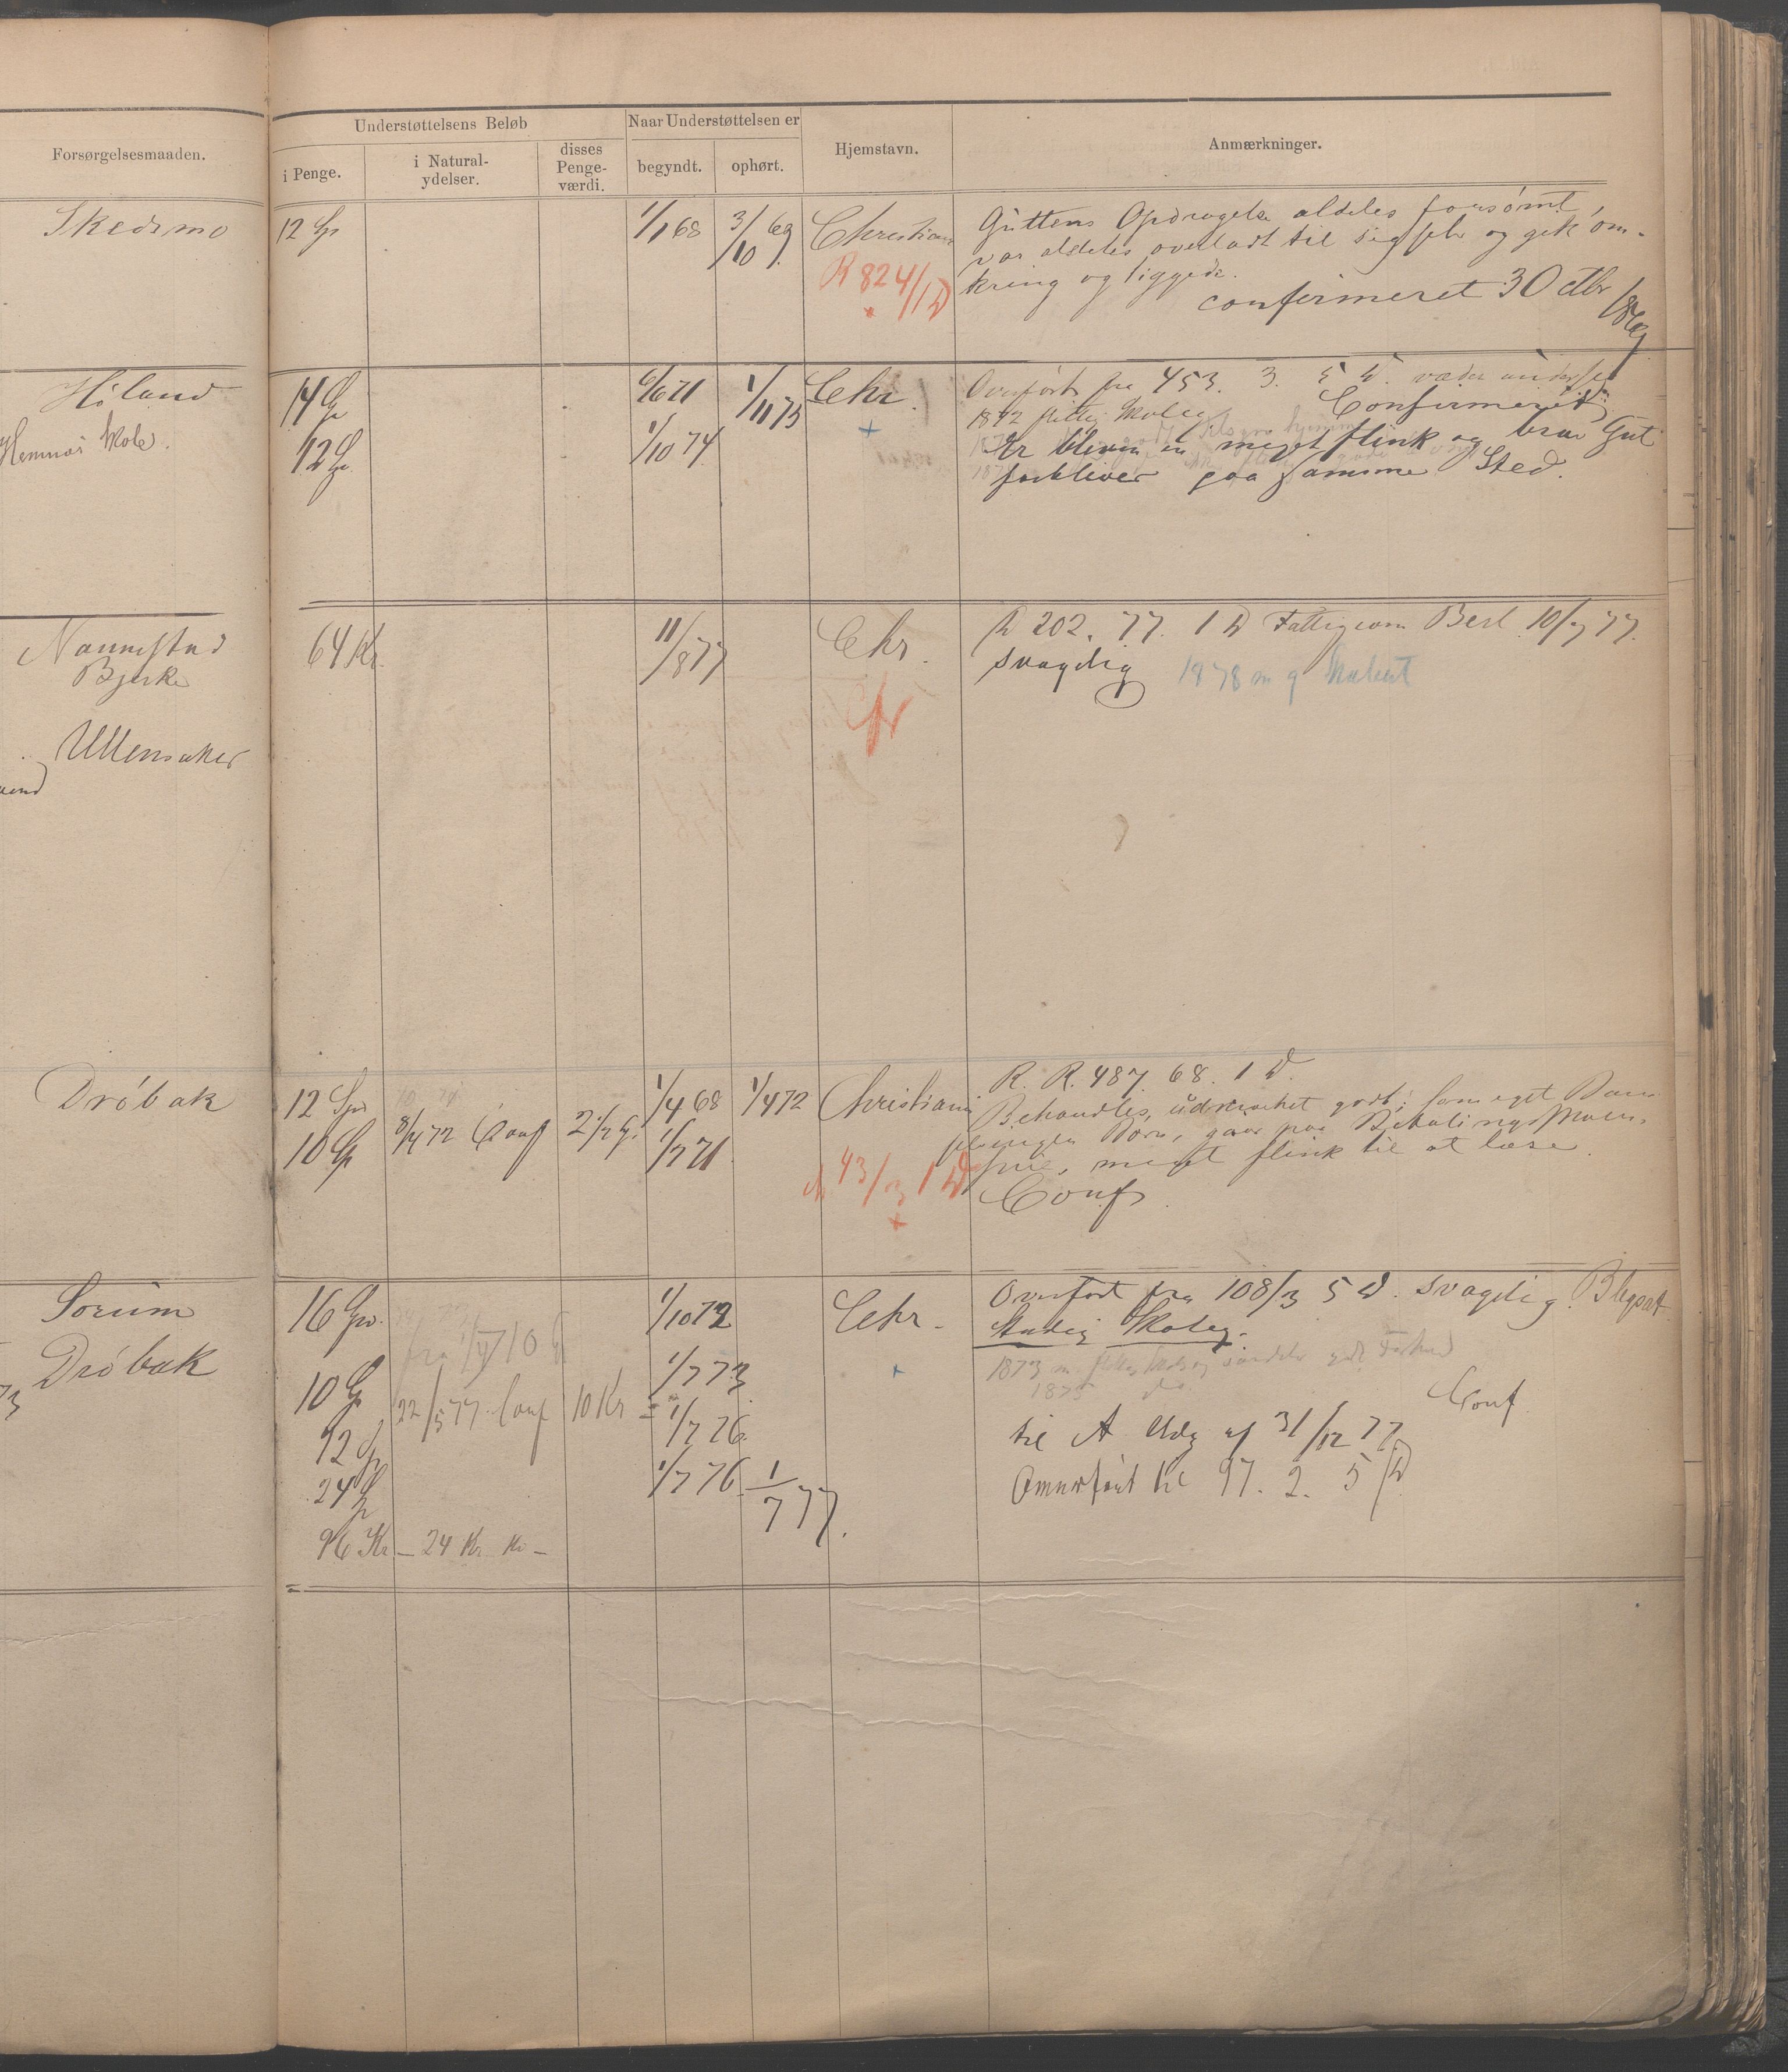 Forsørgelsesmaaden.
Understøttelsens Beløb
Naar Understøttelsen er
Hjemstavn.
Anmærkninger.
i Penge.
i Natural-
ydelser.
disses
Penge-
værdi.
begyndt.
ophørt.
Skedsmo
12 Sp
1/1 68
3/10 69
Christian
R 824/1 D
Guttens Opdragelse aldeles forsømt,
var aldeles overladt til sig selv og gik om-
kring og tiggede.
confirmeret 3 Octbr 1869
Høland
Hemnæs Skole.
14 Sp
12 Sp
6/6 71
1/10 74
1/11 75
Chr.
+
Overført fra 453. 3. 5 D.
1872 flittig Skoleg
Confirmeret
Er bleven en meget flink og brav Gut
forbliver paa samme Sted.
Nannestad
Bjerke
Ullensaker
64 Kr.
11/8 77
Chr.
R 202. 77. 1 D Fattigcom Besl. 10/7 77.
svagelig
1878 m g
Drøbak
12 Sp
10 Sp
8/4 72 Conf
2 1/2 Sp.
1/4 68
1/7 71
1/4 72
Christiania
43/3 1 D
+
R. R. 487. 68. 1 D.
Behandles udmærket godt; som eget Barn
gaar paa Betalings
meget flink til at læse.
Conf
Sørum
Drøbak
16 Sp.
10 Sp
12 Sp
24 Sp
96 Kr – 24 Kr
22/5 77 Conf
10 Kr
1/10 72
1/7 73
1/7 76
1/7 76
1/7 77.
Chr.
+
Overført fra 108/3 5 D. svagelig.
Stadig Skoleg.
1873
1875 do
Conf
til A Udg af 31/12 77
Omverført til 97. 2. 5 D